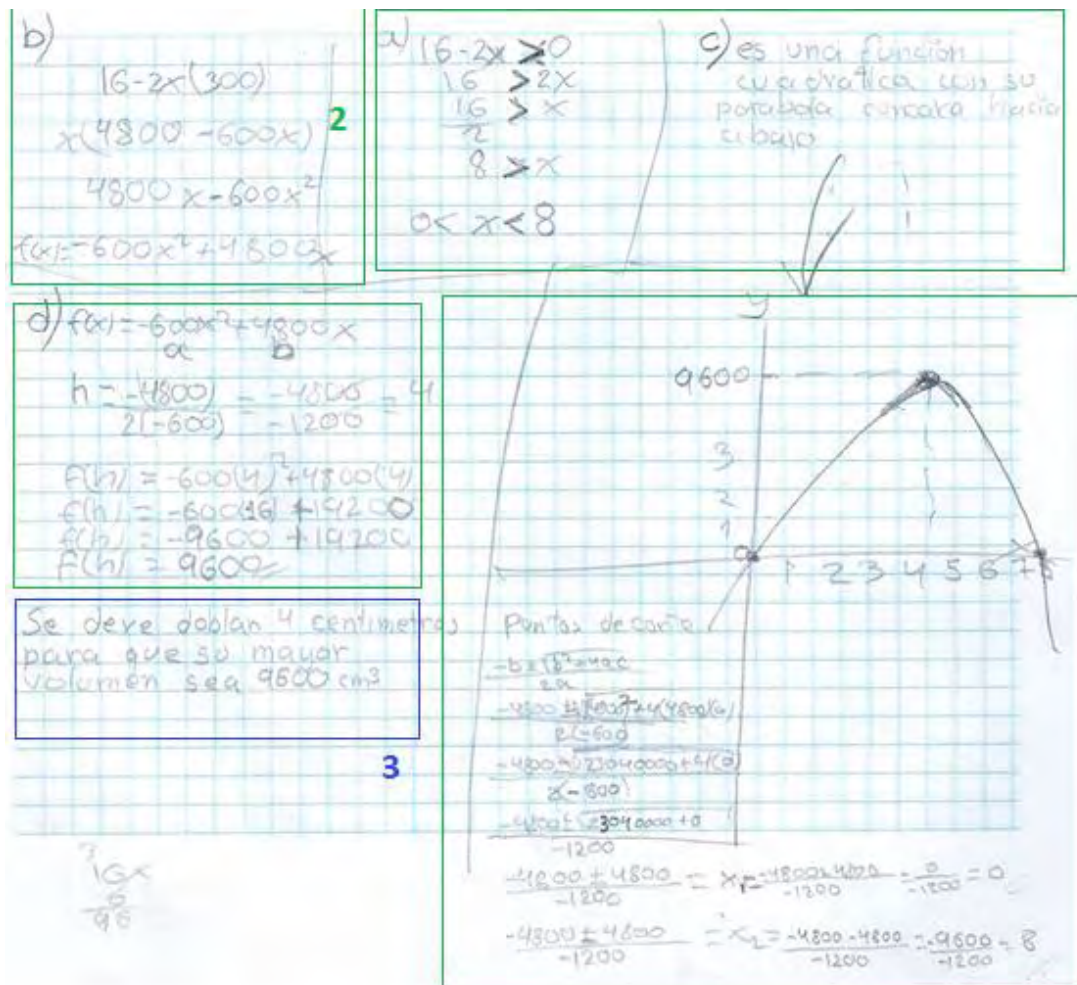 b)
16-2x(300)
x(4800 -600x)
4800x-600x²
f(x)=-600x²+4800x
2
a)
16-2x>0
16 >2x
16/2 >x
8 >x
0< x<8
c) es una función
cuadratica con su
parabola concava hacia
abajo
d) f(x)=-600x²+4800x
a b
h = -(4800)/2(-600) = -4800/-1200 = 4
f(h) = -600(4)²+4800(4)
f(h) = -600(16) +19200
f(h) = -9600 +19200
f(h) = 9600
Se deve doblan 4 centimetros
para que su mayor
volumen sea 9600 cm³
3
y
9600
3
2
1
0 1 2 3 4 5 6 7 8
x
Puntos de corte
-b±√b²-4ac
2a
2(-600)
-4800±√23040000+4(0)
-4800±√23040000+0
-1200
-4800±4800/-1200 = x₁=-4800+4800/-1200=0/-1200=0
-4800±4800/-1200 =x₂=-4800-4800/-1200=-9600/-1200=8
16x
6
96